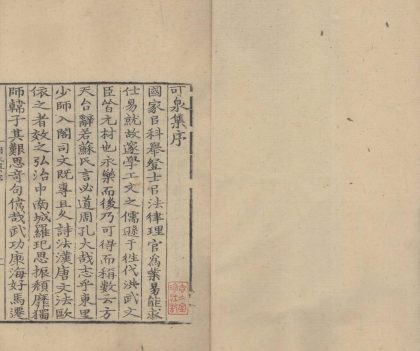 可泉集序
國家以科舉登士以法律理官為業易能求
仕易就故邃學工文之儒遜于往代洪武文
臣皆元材也永樂而後乃可得而稱數云方
天台辭若蘇氏言必道周孔大哉志乎東里
少師入閣司文既專且久詩法漢唐文法歐
依之者效之弘治中南城羅玘思振頹靡獨
師韓子其艱思奇句偉哉武功康海好馬遷